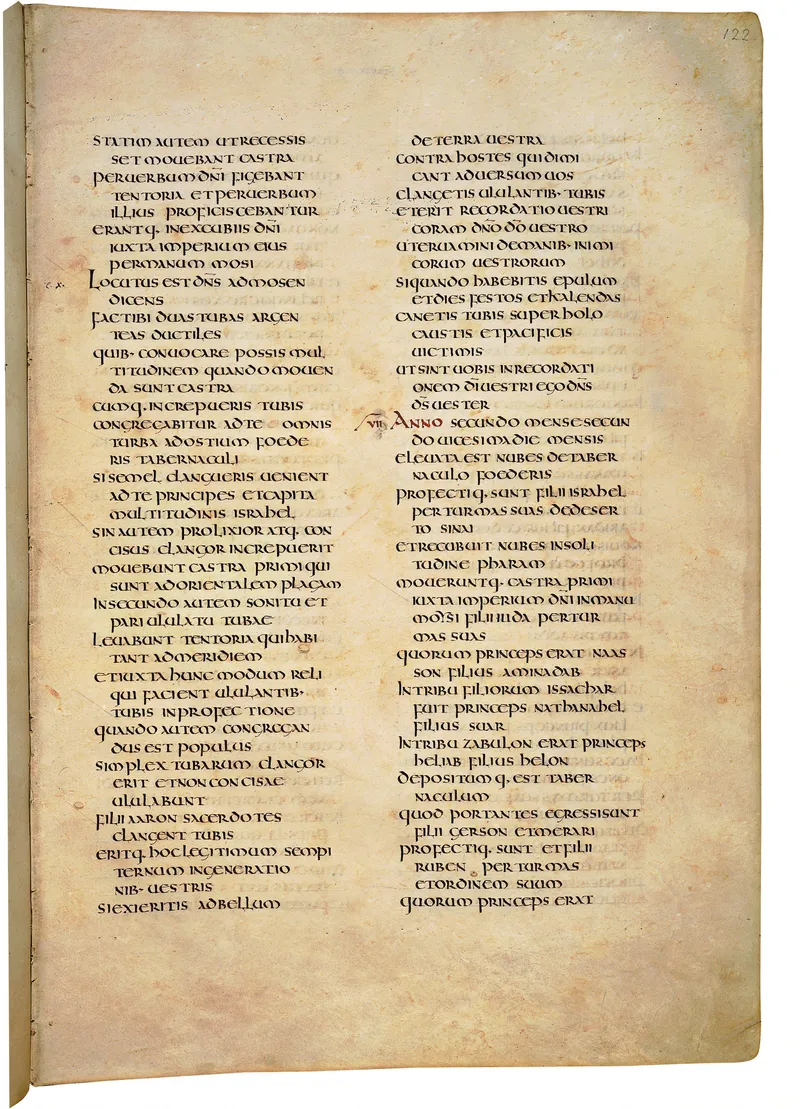 122
STATIM AUTEM UT RECESSIS
SET MOUEBANT CASTRA
PER UERBUM DN̄I FIGEBANT
TENTORIA ET PER UERBUM
ILLIUS PROFICISCEBANTUR
ERANTQ· IN EXCUBIIS DN̄I
IUXTA IMPERIUM EIUS
PER MANUM MOSI
c. x. LOCUTUS EST DN̄S AD MOSEN
DICENS
FAC TIBI DUAS TUBAS ARGEN
TEAS DUCTILES
QUIB· CONUOCARE POSSIS MUL
TITUDINEM QUANDO MOUEN
DA SUNT CASTRA
CUMQ· INCREPUERIS TUBIS
CONGREGABITUR AD TE OMNIS
TURBA AD OSTIUM FOEDE
RIS TABERNACULI
SI SEMEL CLANGUERIS UENIENT
AD TE PRINCIPES ET CAPITA
MULTITUDINIS ISRAHEL
SIN AUTEM PROLIXIOR ATQ· CON
CISUS CLANGOR INCREPUERIT
MOUEBUNT CASTRA PRIMI QUI
SUNT AD ORIENTALEM PLAGAM
IN SECUNDO AUTEM SONITU ET
PARI ULULATU TUBAE
LEUABUNT TENTORIA QUI HABI
TANT AD MERIDIEM
ET IUXTA HUNC MODUM RELI
QUI FACIENT ULULANTIB·
TUBIS IN PROFECTIONE
QUANDO AUTEM CONGREGAN
DUS EST POPULUS
SIMPLEX TUBARUM CLANGOR
ERIT ET NON CONCISAE
ULULABUNT
FILII AARON SACERDOTES
CLANGENT TUBIS
ERITQ· HOC LEGITIMUM SEMPI
TERNUM IN GENERATIO
NIB· UESTRIS
SI EXIERITIS AD BELLUM
DE TERRA UESTRA
CONTRA HOSTES QUI DIMI
CANT ADUERSUM UOS
CLANGETIS ULULANTIB· TUBIS
ET ERIT RECORDATIO UESTRI
CORAM DN̄O D̄O UESTRO
UT ERUAMINI DE MANIB· INIMI
CORUM UESTRORUM
SIQUANDO HABEBITIS EPULUM
ET DIES FESTOS ET KALENDAS
CANETIS TUBIS SUPER HOLO
CAUSTIS ET PACIFICIS
UICTIMIS
UT SINT UOBIS IN RECORDATI
ONEM D̄I UESTRI EGO DN̄S
D̄S UESTER
VII ANNO SECUNDO MENSE SECUN
DO UICESIMA DIE MENSIS
ELEUATA EST NUBES DE TABER
NACULO FOEDERIS
PROFECTIQ· SUNT FILII ISRAHEL
PER TURMAS SUAS DE DESER
TO SINAI
ET RECUBUIT NUBES IN SOLI
TUDINE PHARAM
MOUERUNTQ· CASTRA PRIMI
IUXTA IMPERIUM DN̄I IN MANU
MOSI FILII IUDA PER TUR
MAS SUAS
QUORUM PRINCEPS ERAT NAAS
SON FILIUS AMINADAB
IN TRIBU FILIORUM ISSACHAR
FUIT PRINCEPS NATHANAHEL
FILIUS SUAR
IN TRIBU ZABULON ERAT PRINCEPS
HELIAB FILIUS HELON
DEPOSITUMQ· EST TABER
NACULUM
QUOD PORTANTES EGRESSI SUNT
FILII GERSON ET MERARI
PROFECTIQ· SUNT ET FILII
RUBEN PER TURMAS
ET ORDINEM SUUM
QUORUM PRINCEPS ERAT